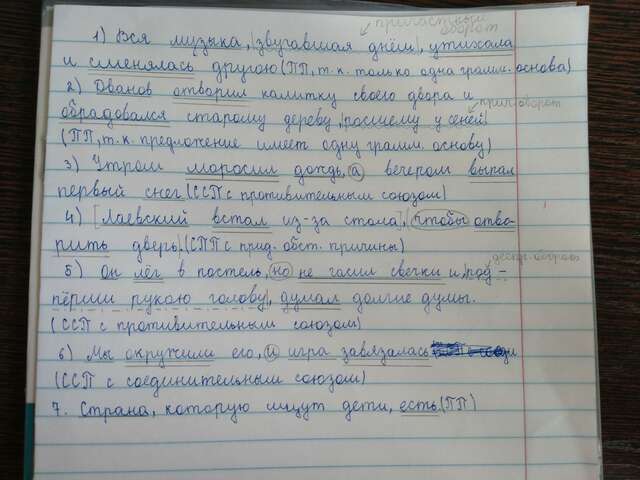 причастный
оборот
1) Вся музыка, звучавшая днём, утихала
и сменялась другою (ПП, т.к. только одна грамм. основа)
2) Иванов отворил калитку своего двора и
прич. оборот
обрадовался старому дереву, росшему у сеней
(ПП, т.к. предложение имеет одну грамм. основу)
3) Утром моросил дождь, а вечером выпал
первый снег (ССП с противительным союзом)
4) [Лаевский встал из-за стола], чтобы отво-
рить дверь. (СПП с прид. обст. причины)
дееpr. оборот
5) Он лёг в постель, но не гасил свечки и, под-
пёрши рукою голову, думал долгие думы.
(ССП с противительным союзом)
6) Мы окружили его, и игра завязалась
(ССП с соединительным союзом)
7. Страна, которую ищут дети, есть. (ПП)